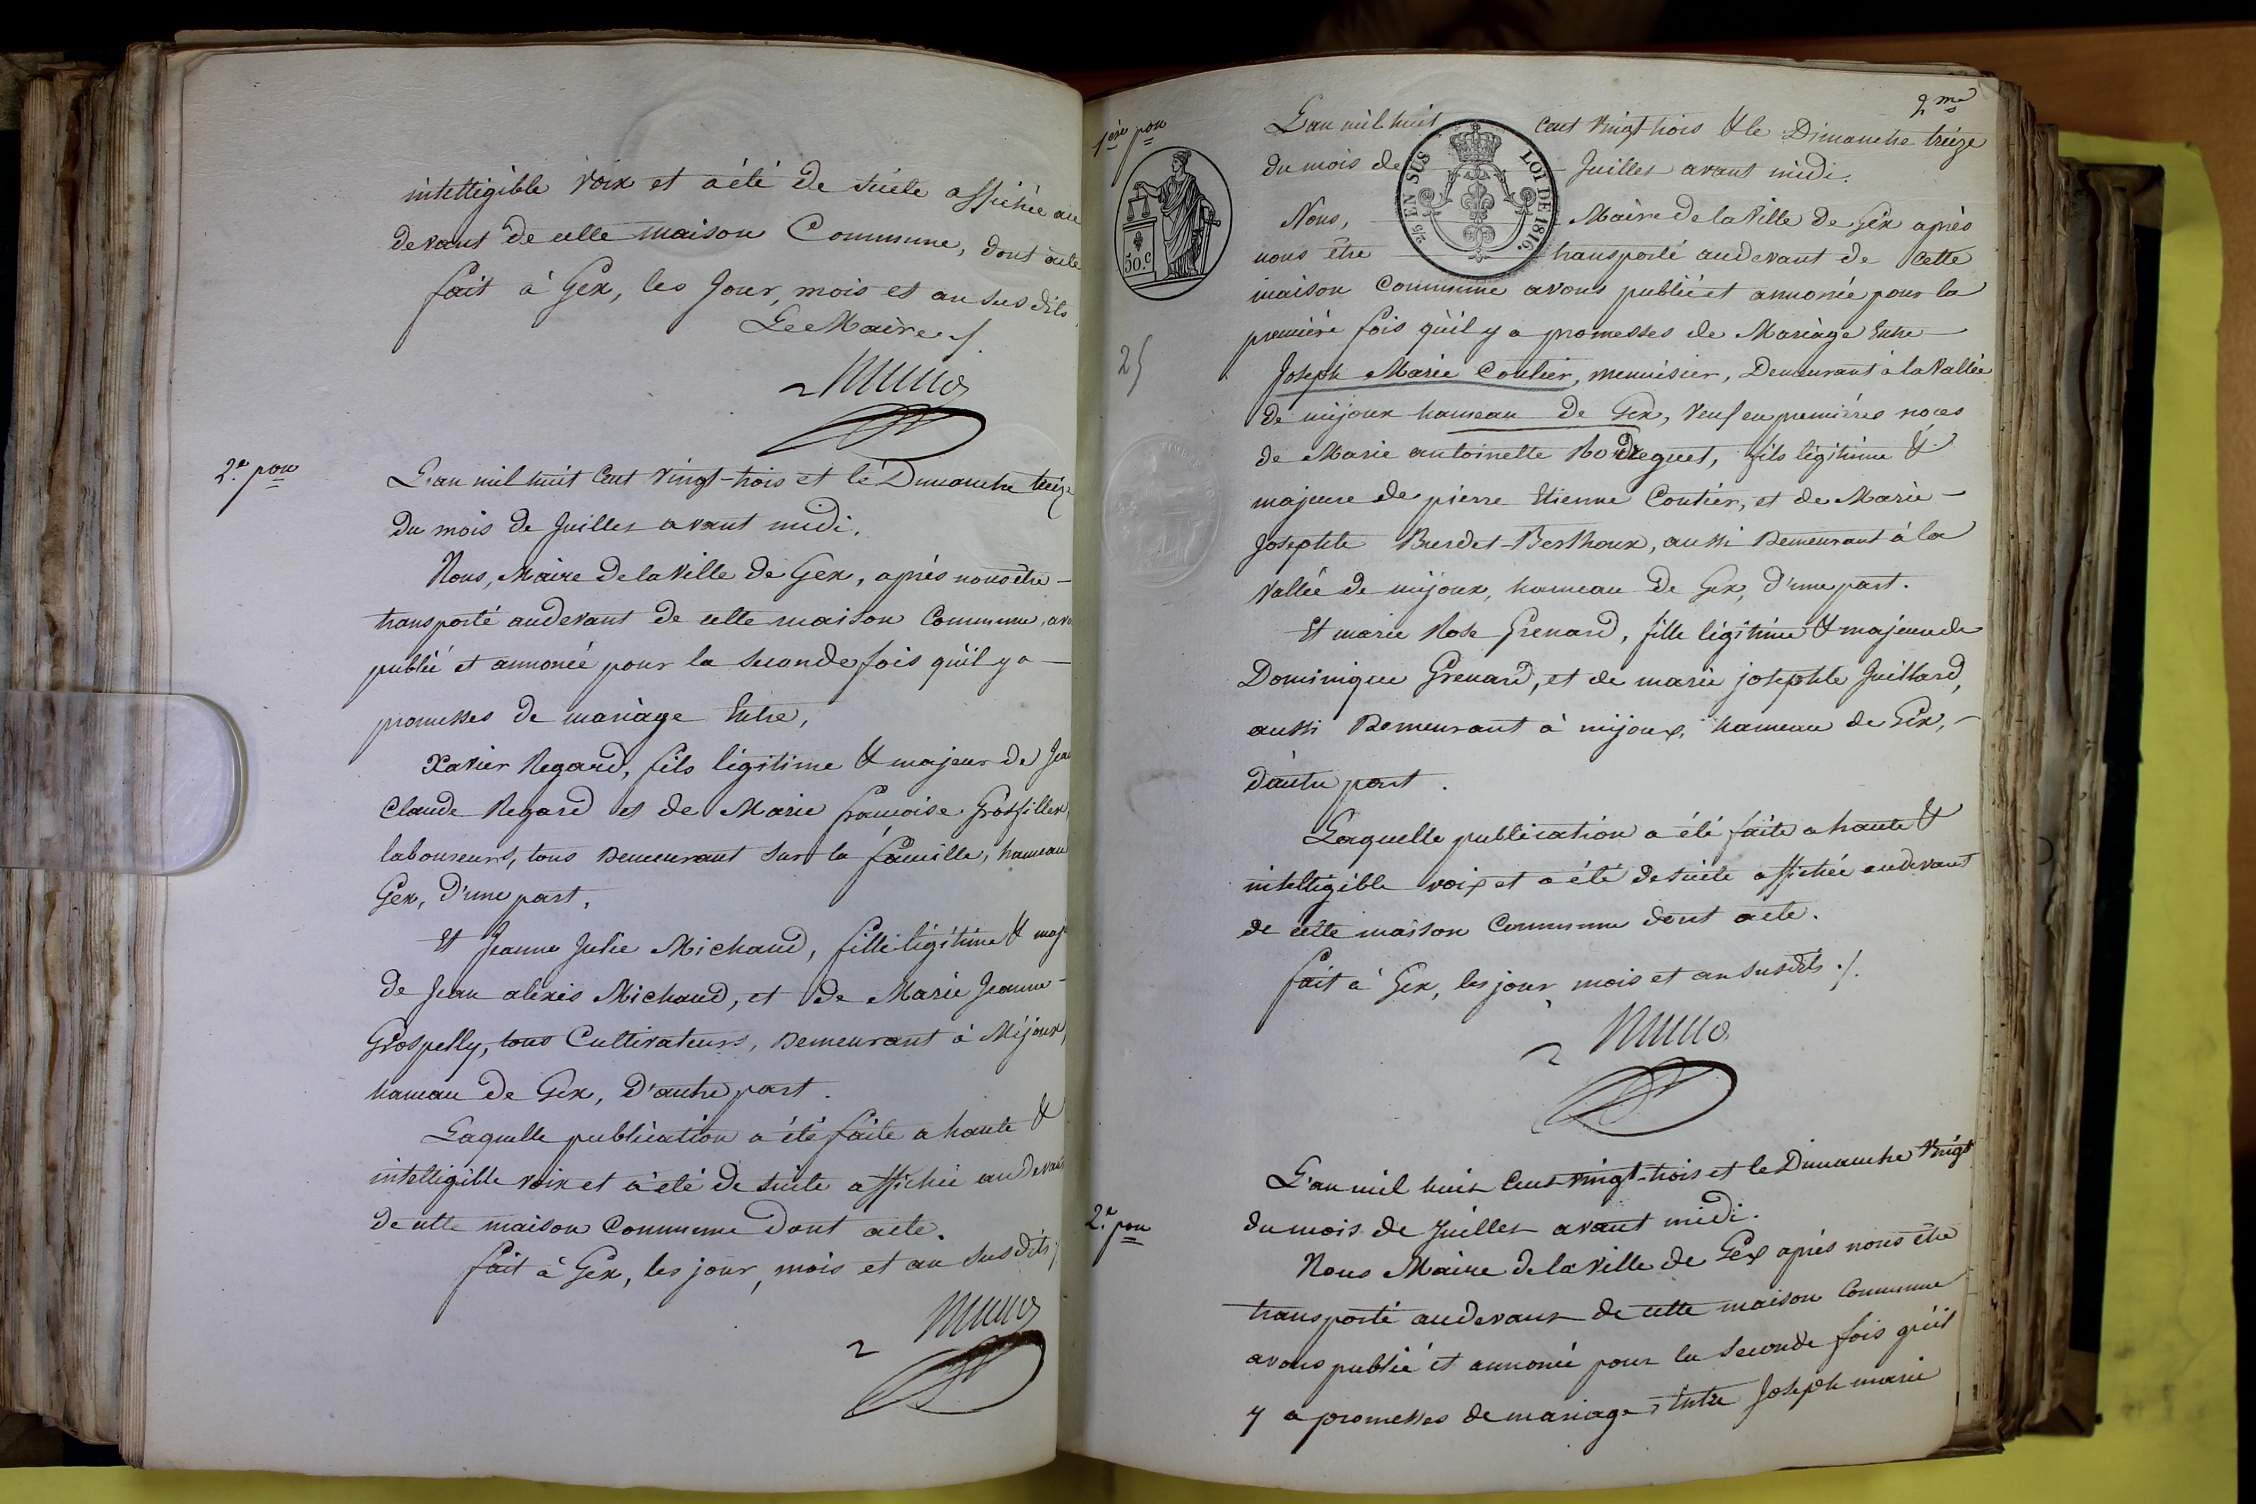 intelligible voix et a été de suite affichée au
devant de cette maison Commune, dont acte
fait à Gex, les Jour, mois et an susdits
Le Maire ./.
2.e pon
L'an mil huit Cent Vingt-trois et le Dimanche treize
du mois de Juillet avant midi.
Nous, Maire de la Ville de Gex, après nous être
transporté audevant de cette maison Commune, avo
publié et annoncé pour la seconde fois qu'il y a
promesses de mariage Entre,
Xavier Regard, fils légitime & majeur de Jean
Claude Regard et de Marie françoise Grosfillex,
laboureurs, tous Demeurant sur la faucille, hameau
Gex, d'une part,
Et Jeanne Julie Michaud, fille légitime & maj
de Jean alexis Michaud, et de Marie Jeanne
Grospelly, tous Cultivateurs, Demeurant à Mijoux,
hameau de Gex, D'autre part.
Laquelle publication a été faite a haute &
intelligible voix et a été de suite affichée audevant
de cette maison Commune Dont acte.
fait à Gex, les jour, mois et an susdits ./.
2me
1ère pon
L'an mil huit cent Vingt trois & le Dimanche treize
du mois de Juillet avant midi.
Nous, Maire de la Ville de Gex après
nous être transporté audevant de Cette
2/5 EN SUS LOI DE 1816.
50.c
maison Commune avons publié et annoncée pour la
première fois qu'il y a promesses de Mariage Entre
25
Joseph Marie Coutier, menuisier, Demeurant à la Vallée
de mijoux hameau de Gex, Veuf en premières noces
de Marie antoinette, fils légitime &
majeure de pierre Etienne Coutier, et de Marie
Josephte Burdet-Berthoux, aussi Demeurant à la
Vallée de mijoux, hameau de Gex, d'une part.
Et marie Rose Grenard, fille légitime & majeure de
Dominique Grenard, et de marie josephte Juillard,
aussi Demeurant à mijoux, hameau de Gex,
D'autre part.
Laquelle publication a été faite a haute &
intelligible voix et a été de suite affichée audevant
de cette maison Commune dont acte.
fait à Gex, les jour, mois et an susdits ./.
2.e pon
L'an mil huit Cent vingt-trois et le Dimanche Vingt
du mois de Juillet avant midi.
Nous Maire de la Ville de Gex après nous être
transporté audevant de cette maison Commune
avons publié et annoncé pour la seconde fois qu'il
y a promesses de mariage, Entre Joseph marie